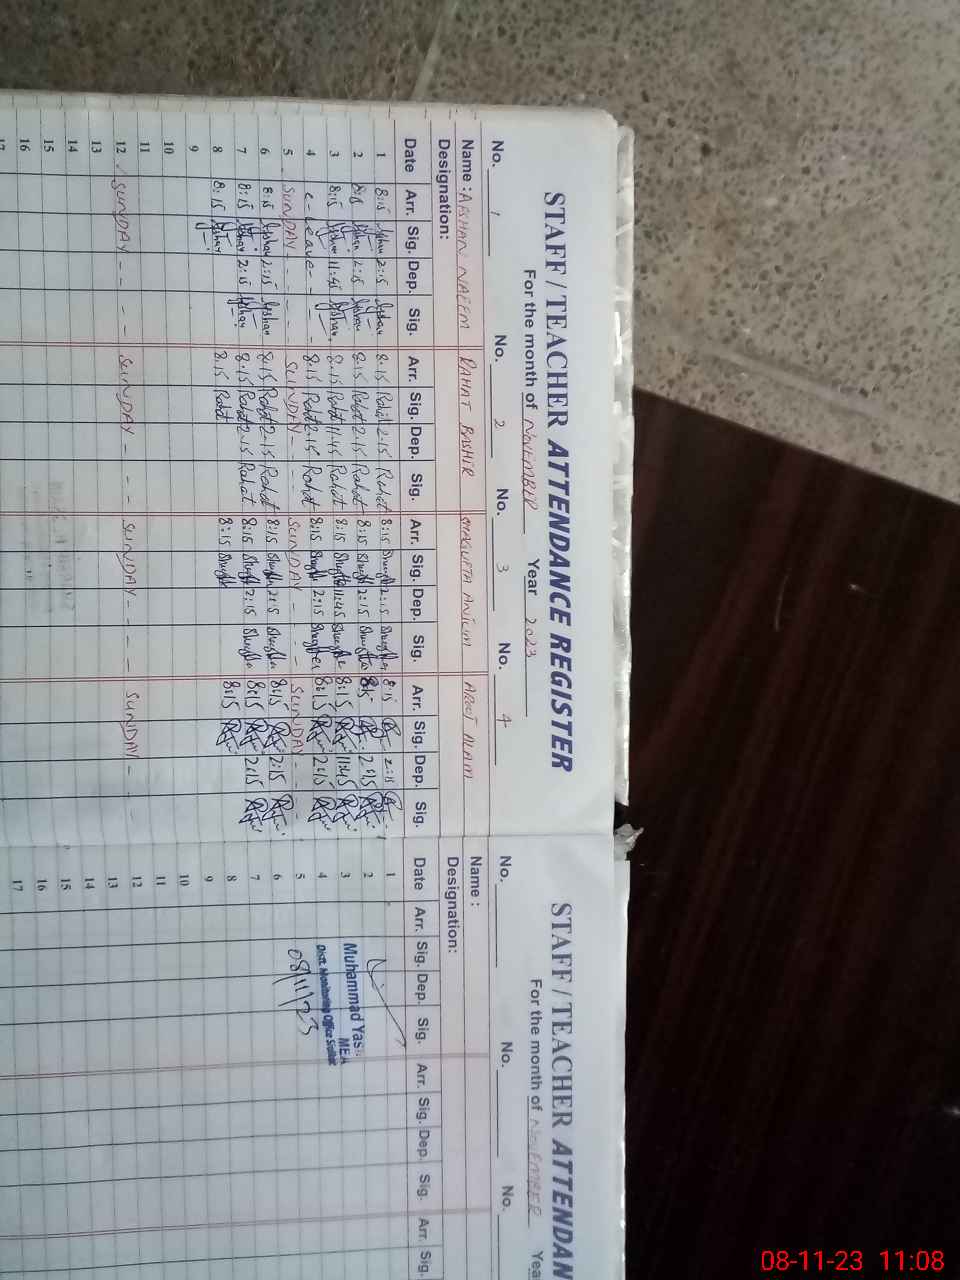 STAFF / TEACHER ATTENDANCE REGISTER
For the month of NOVEMBER Year 2023
No. 1 No. 2 No. 3 No. 4
Name : AFSHAN NAEEM RAHAT BASHIR SHAGUFTA ANJUM AROOJ ALAM
Designation:
Date Arr. Sig. Dep. Sig. Arr. Sig. Dep. Sig. Arr. Sig. Dep. Sig. Arr. Sig. Dep. Sig.
1 8:15 Afshan 2:15 Afshan 8:15 Rahat 2-15 Rahat 8:15 2:15 8:15 2:15
2 8:15 Afshan 2:15 Afshan 8:15 Rahat 2-15 Rahat 8:15 2:15 8:15 2:15
3 8:15 Afshan 11:45 Afshan 8:15 Rahat 11-45 Rahat 8:15 11:45 8:15 11:45
4 c-Leave-- 8:15 Rahat 2-15 Rahat 8:15 2:15 8:15 2:15
5 SUNDAY---- SUNDAY---- SUNDAY---- SUNDAY----
6 8:15 Afshan 2:15 Afshan 8:15 Rahat 2-15 Rahat 8:15 2:15 8:15 2:15
7 8:15 Afshan 2:15 Afshan 8:15 Rahat 2-15 Rahat 8:15 2:15 8:15 2:15
8 8:15 Afshan 8:15 Rahat 8:15 8:15
9
10
11
12 SUNDAY---- SUNDAY---- SUNDAY---- SUNDAY----
13
14
15
16
17
STAFF / TEACHER ATTENDAN
For the month of NOVEMBER Yea
No. No. No.
Name :
Designation:
Date Arr. Sig. Dep. Sig. Arr. Sig. Dep. Sig. Arr. Sig.
1
2
3
4
5
6
7
8
9
10
11
12
13
14
15
16
17
Muhammad Yasir
MEA
Distt. Monitoring Office Sialkot
08/11/23
08-11-23 11:08